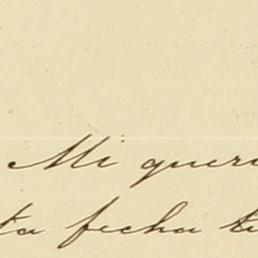 Mi quer
ta fecha t